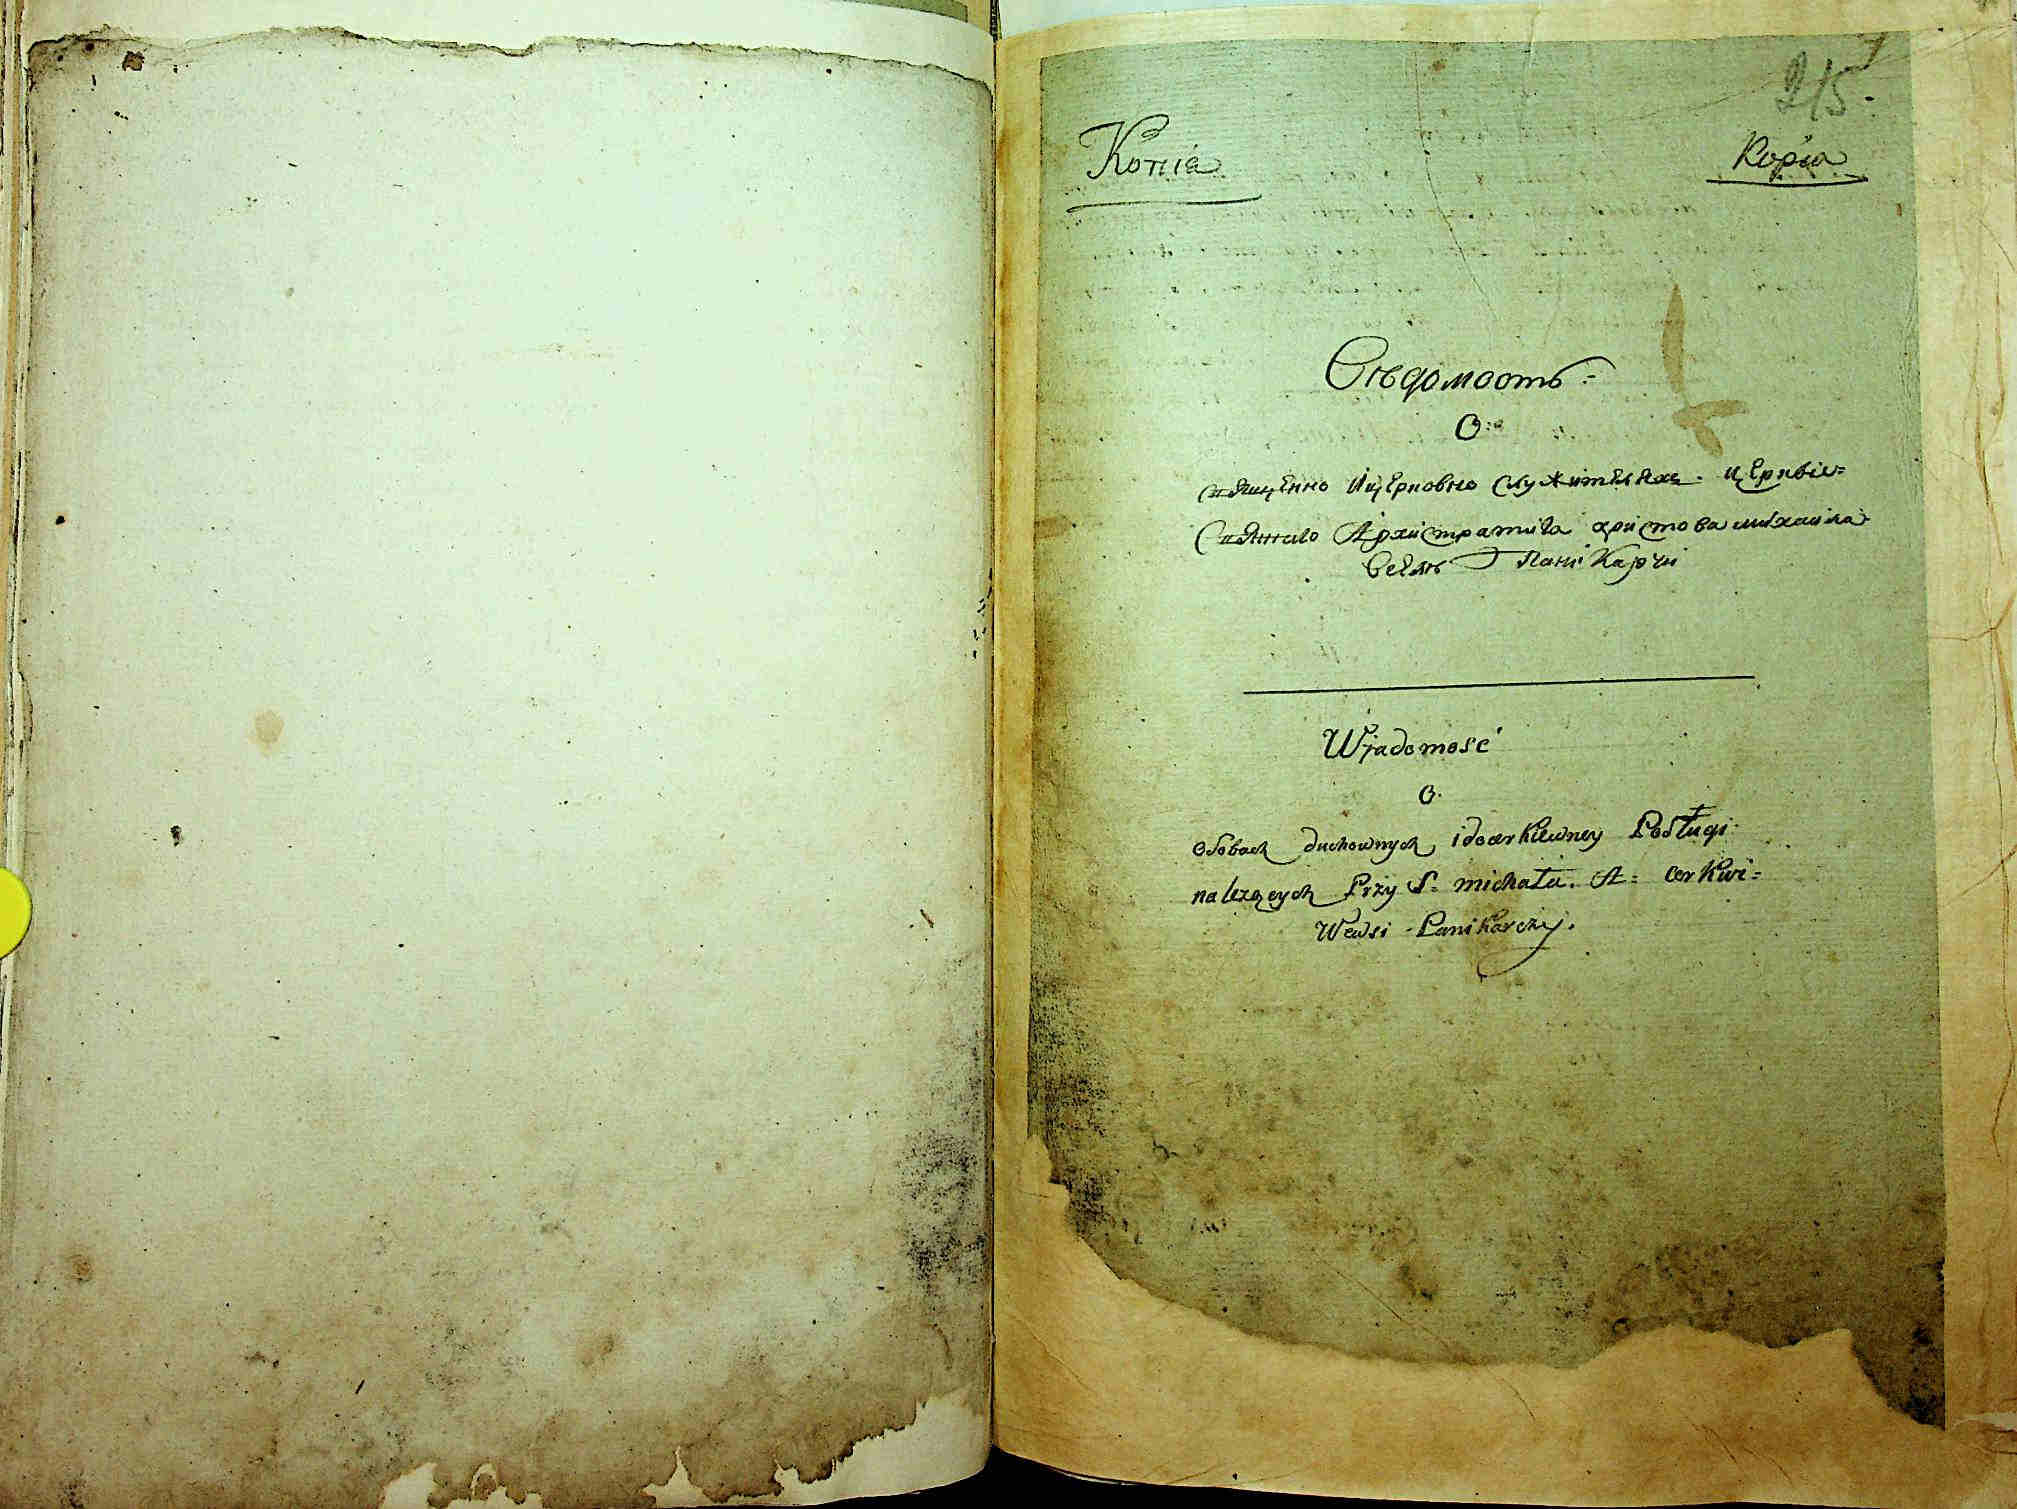 215
Копіа
Kopia
Свѣдомость:
О:
Священно Ицерковно служителяхъ. церквіи=
Святаго Архистратига христова михаила
Велѣ Пани Карчи
Wjadomość
O.
Osobach duchownych idocerkiewney Posługi
nalezących Przy S= michała. A= cerkwi=
Wewsi - Panikarczy.